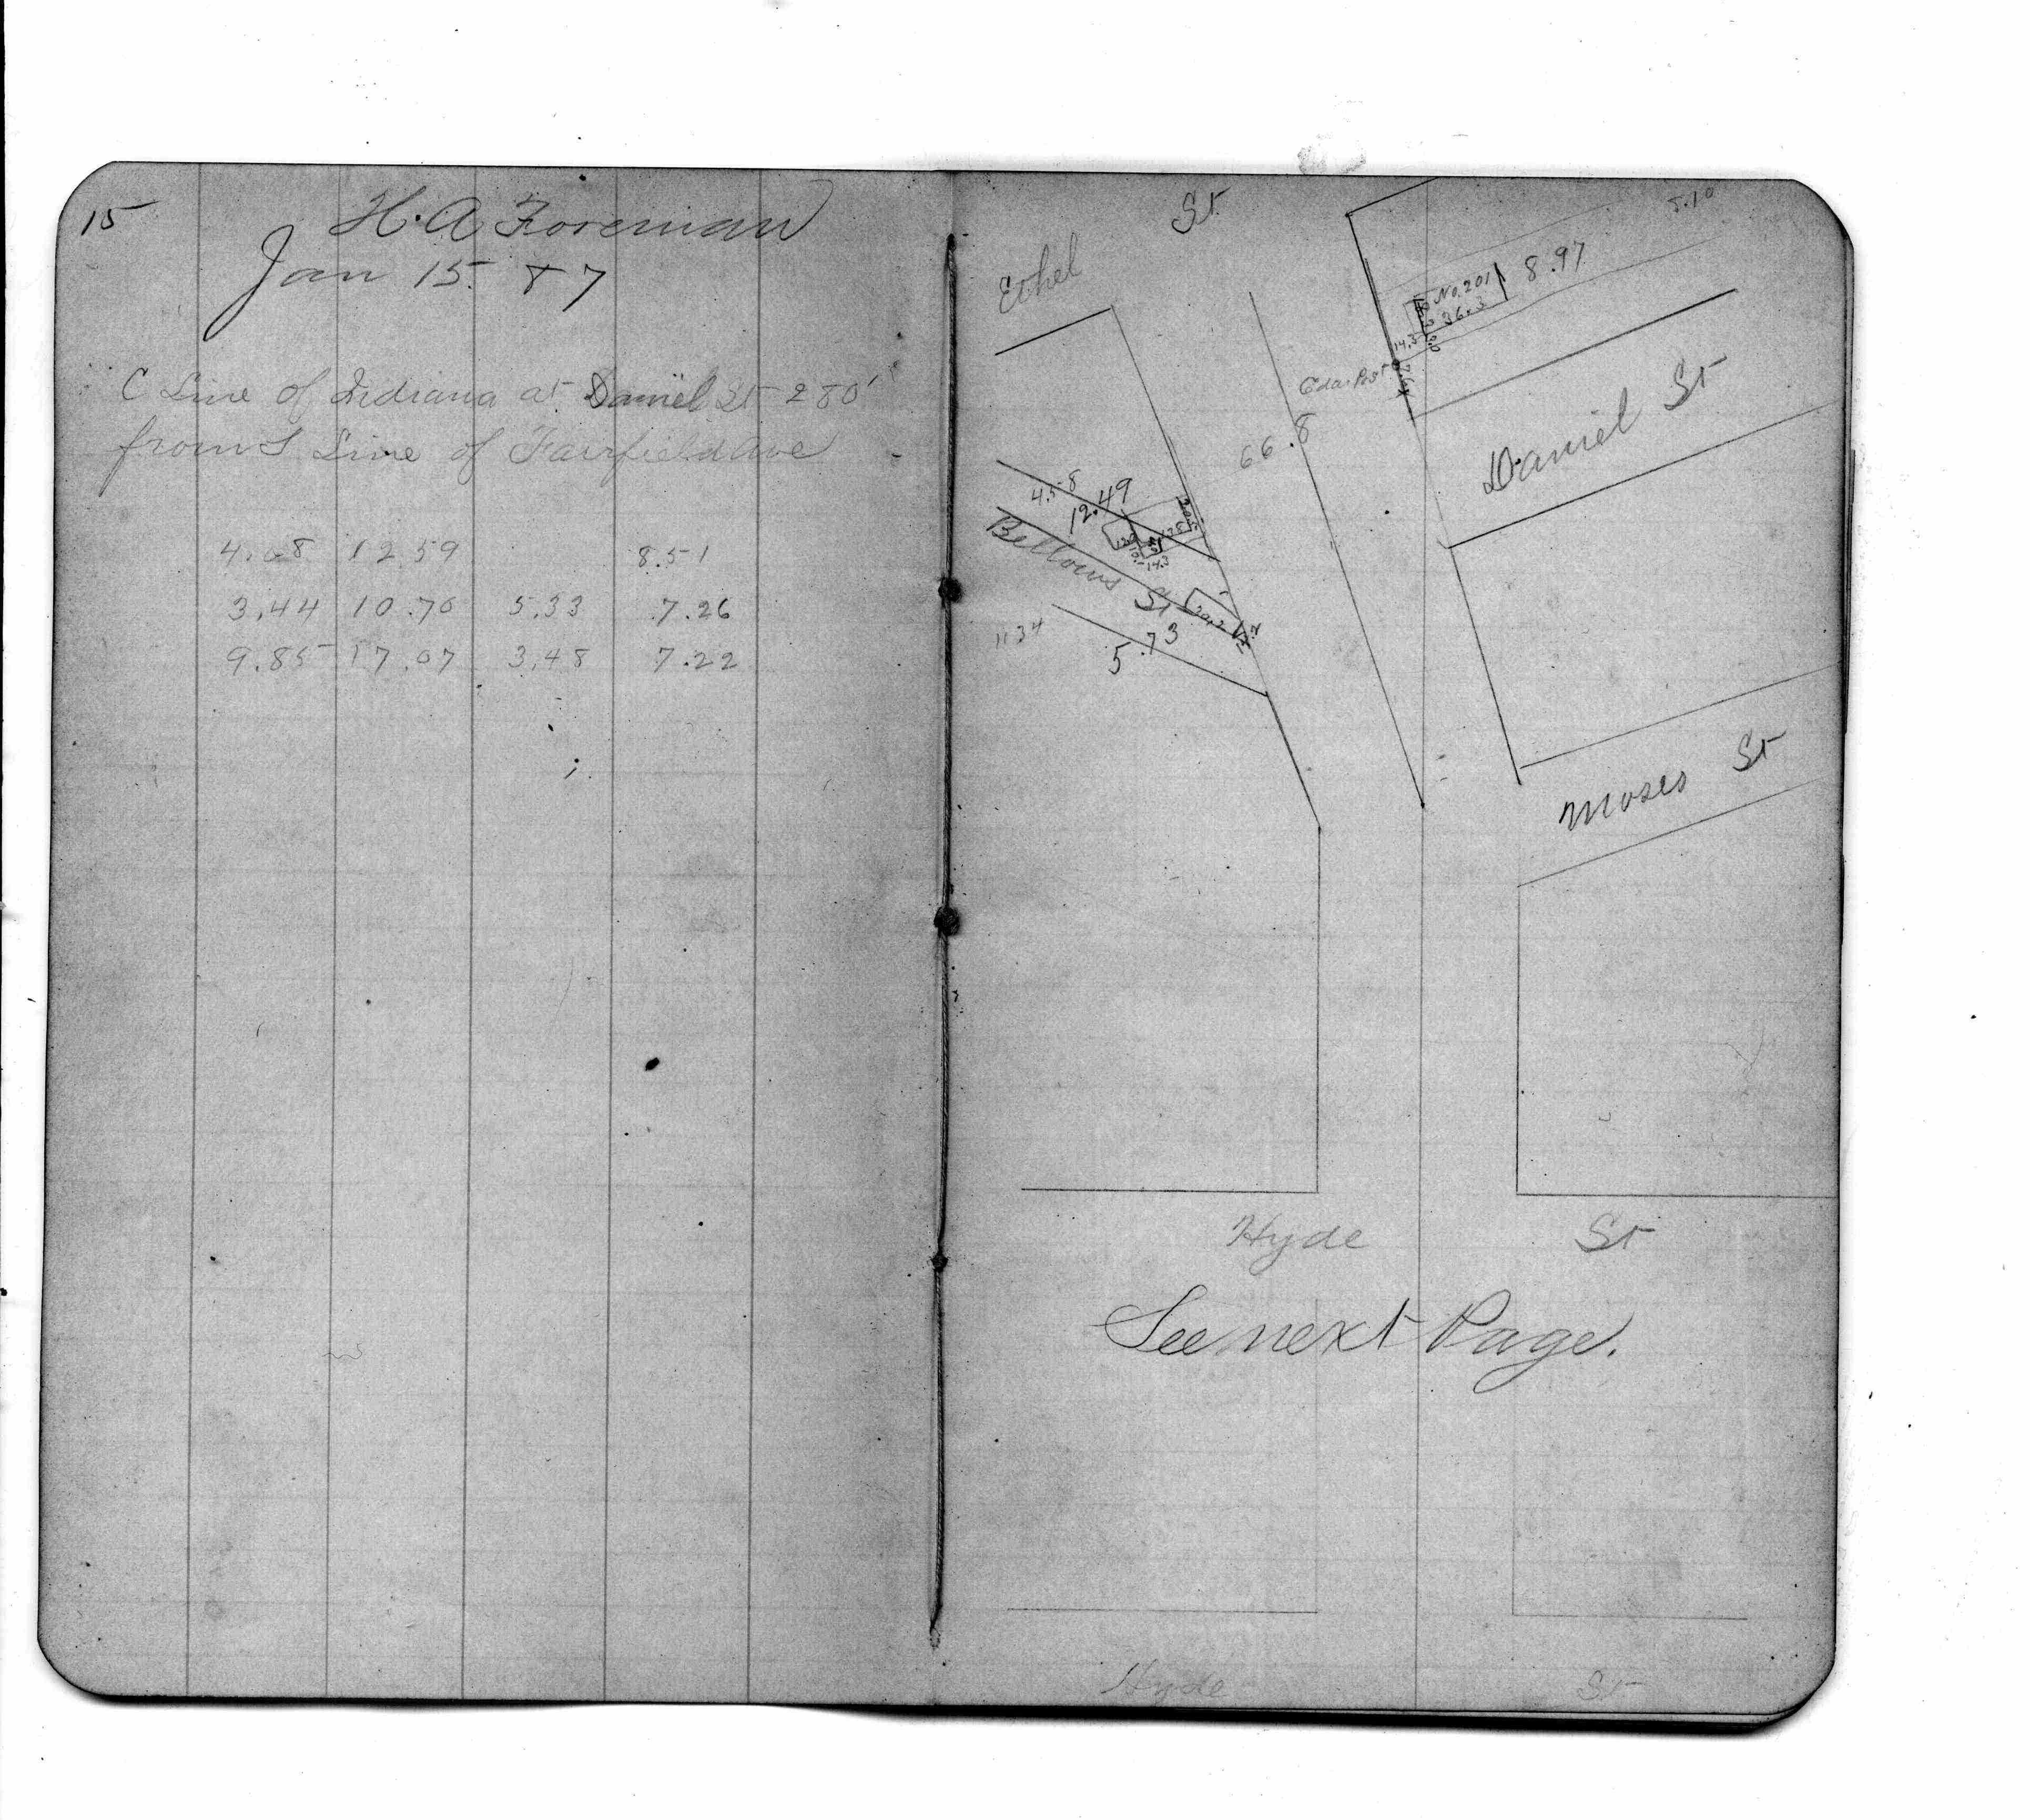 15
H. A Foreman
Jan 15. 87
C Line of Indiana at Daniel St 280'
from S Line of Fairfield Ave
4.08 12 59 8.51
3.44 10.70 5.33 7.26
9.85 17.07 3.48 7.22
St
5.10
Ethel
No. 201
8.97
36.3
14.3
Cedar Post
66.8
Daniel St
45-8
12.49
Bellows St
14.3
20.2
5.73
1134
Moses St
Hyde St
See next Page.
Hyde St